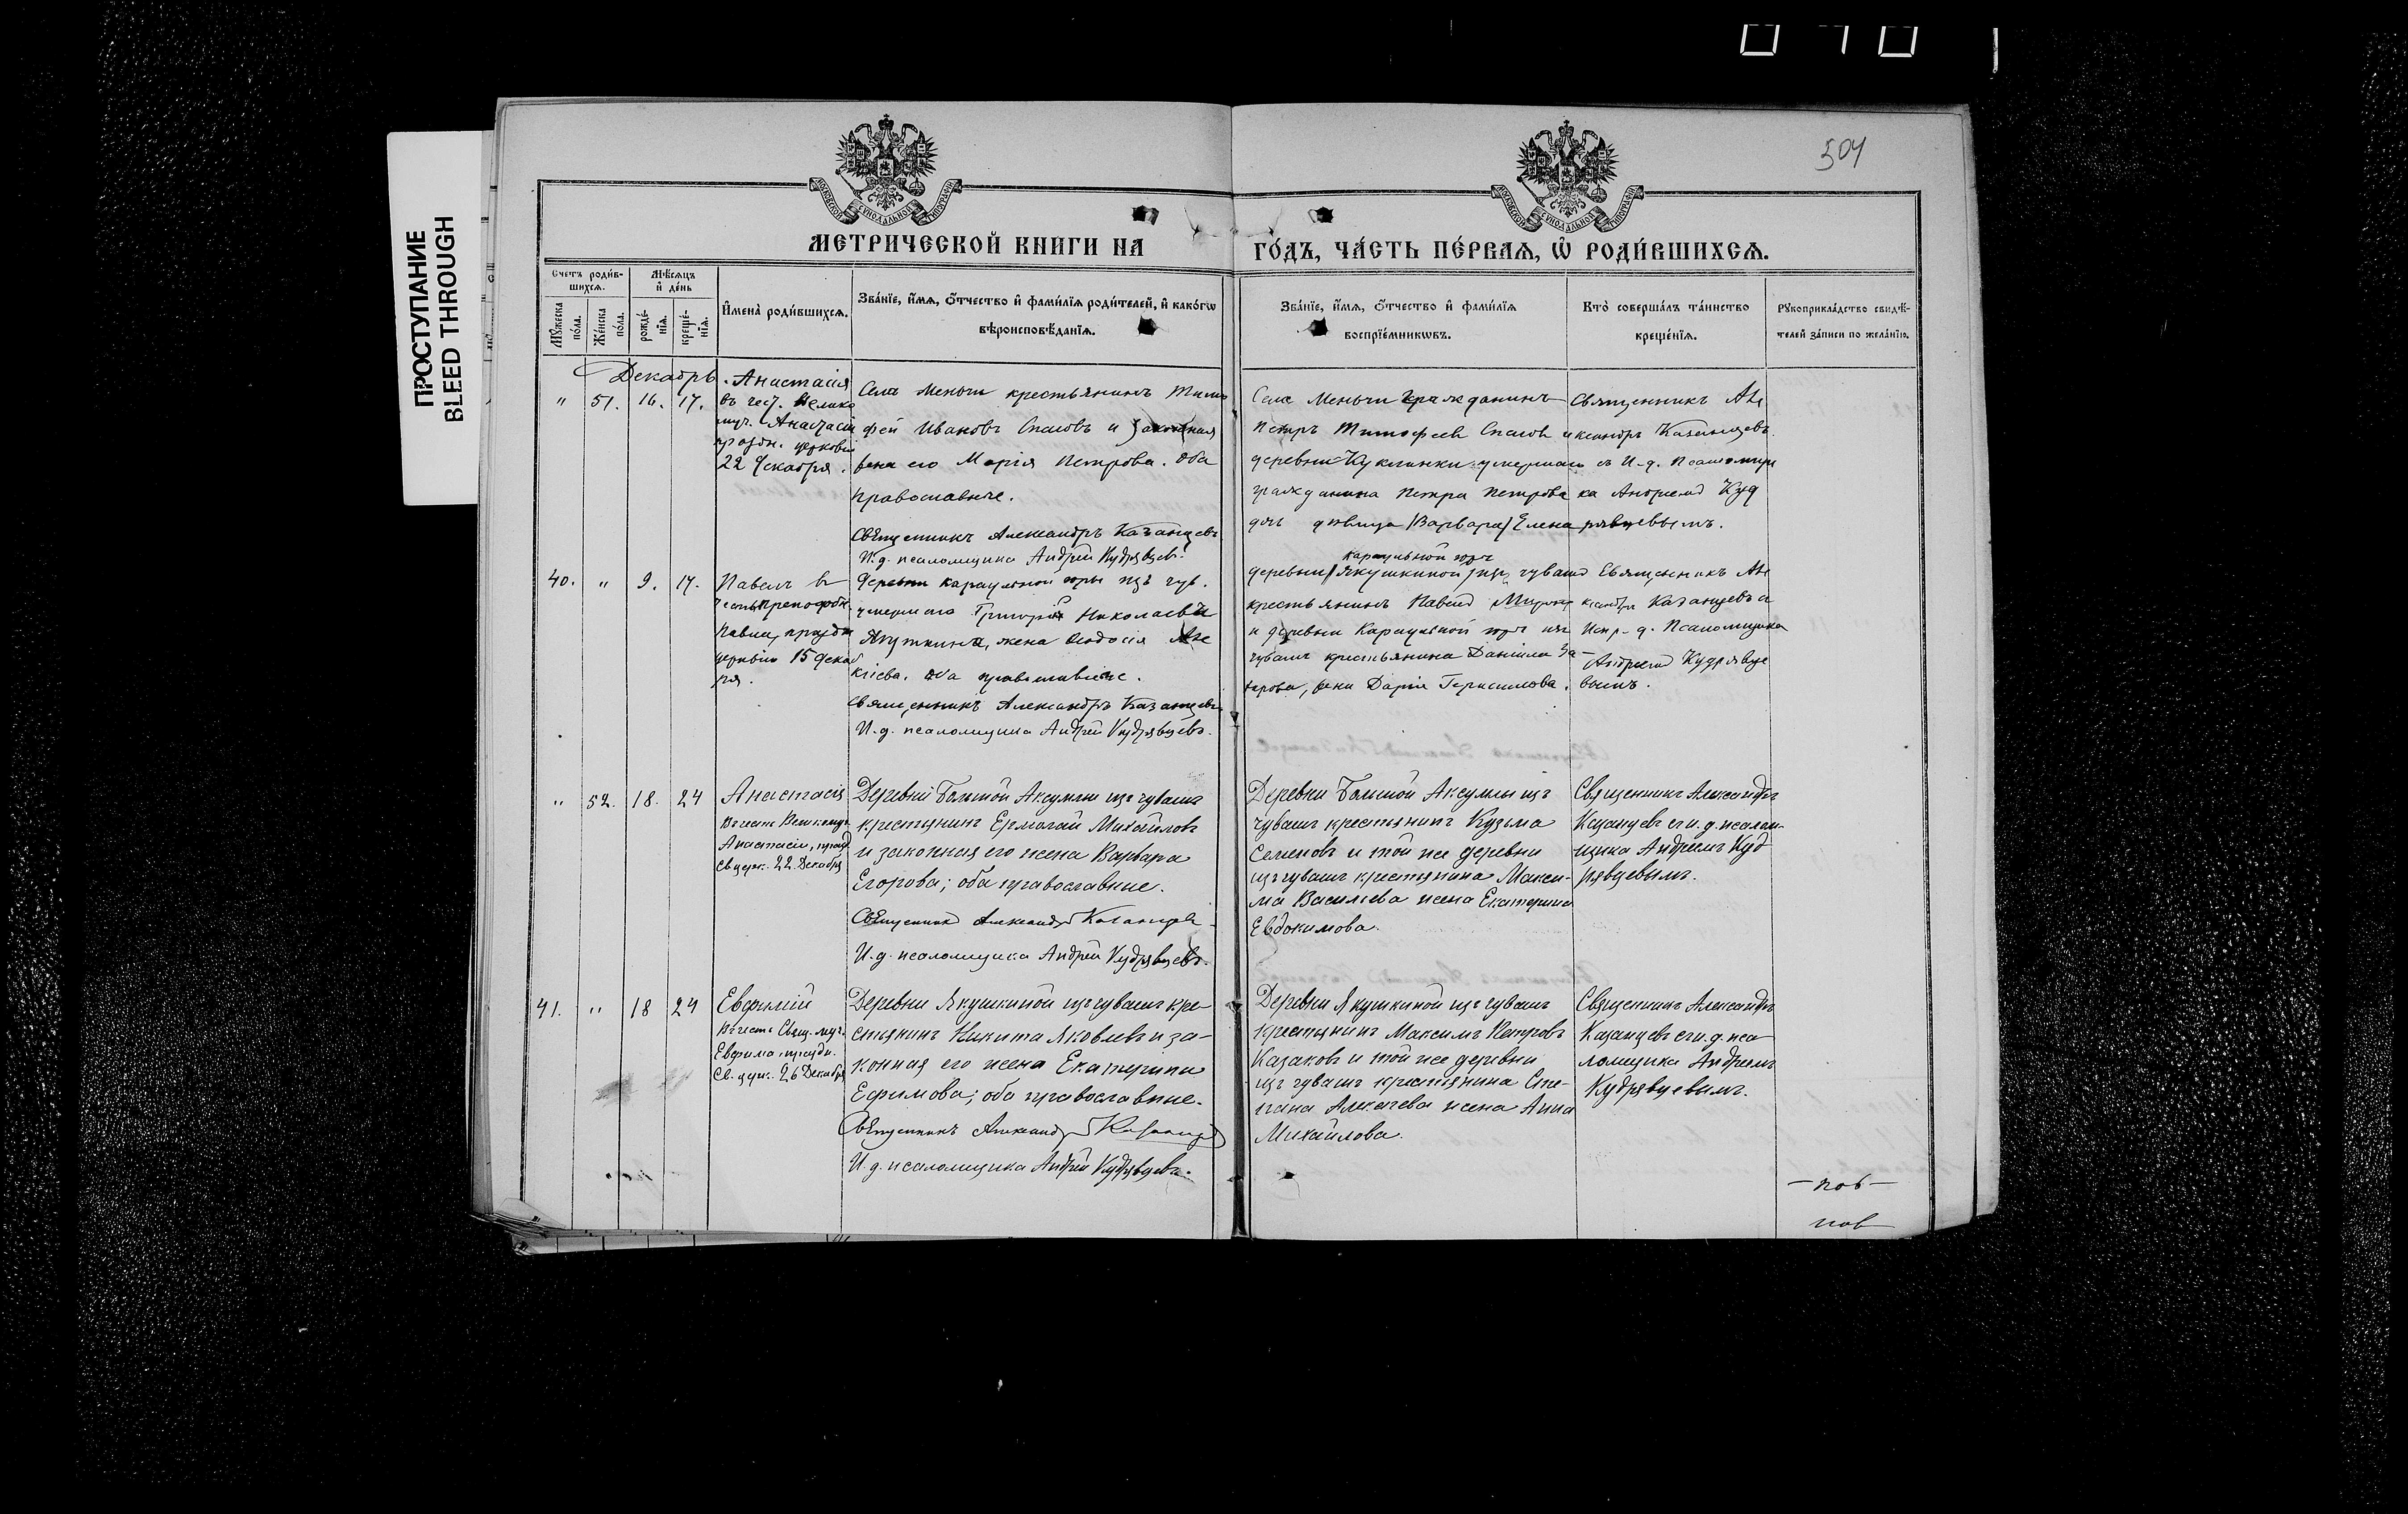 ПРОСТУПАНИЕ
BLEED THROUGH
504
МОСКОВСКОЙ СѴНОДАЛЬНОЙ ТИПОГРАФІИ
МОСКОВСКОЙ СѴНОДАЛЬНОЙ ТИПОГРАФІИ
МЕТРИЧЕСКОЙ КНИГИ НА
ГО́ДЪ, ЧА́СТЬ ПЕ́РВАЯ, Ѿ РОДИ́ВШИХСЯ.
Счетъ роди́в-
шихся.
Мѣ́сяцъ
и҆ де́нь
Мꙋжеска по́ла.
Же́нска по́ла.
рожде́-
нїѧ.
креще́-
нїѧ.
И҆мена̀ роди́вшихся.
Зва́нїе, и҆́мя, ѻ҆́тчество и҆ фами́лїя роди́телей, и҆ како́гѡ
вѣроисповѣ́данїя.
Зва́нїе, и҆́мя, ѻ҆́тчество и҆ фами́лїя
воспрїе́мникѡвъ.
Кто̀ соверша́лъ та́инство
креще́нїя.
Рꙋкоприкла́дство свидѣ́-
телей за́писи по жела́нїю.
Декабрь
" 51. 16. 17.
Анастасія
въ чест. Велико
муч. Анастасіи
праздн. церковію
22 Декабря.
Села Меньчи крестьянинъ Тимо
фей Ивановъ Спасовъ и законная
жена его Марія Петрова. Оба
православные.
Священникъ Александръ Казанцевъ
И.д. псаломщика Андрей Кудрявцевъ.
Села Меньчи гражданинъ
Петръ Тимофеевъ Спасовъ и
деревни Куклинки умершаго
гражданина Петра Петрова
дочь девица (Варвара) Елена
Священникъ Але
ксандръ Казанцевъ
съ И.д. Псаломщи
ка Андреемъ Куд
рявцевымъ.
40. " 9. 17.
Павелъ въ
честь преподобн.
Павла, праздн
церковію 15 декаб
ря.
Деревни Караульной горы изъ чув.
умершаго Григорія Николаева
Якушкина, жена Ѳеодосія Але
ксіева. Оба православные.
Священникъ Александръ Казанцевъ
И.д. псаломщика Андрей Кудрявцевъ.
Караульной горы
деревни (Якушкиной) изъ чувашъ
крестьянинъ Павелъ
и деревни Караульной горы изъ
чувашъ крестьянина Даніила За-
харова, жена Дарія Герасимова.
Священникъ Але
ксандръ Казанцевъ и
Испр. д. Псаломщика
Андреемъ Кудрявце
вымъ.
" 52. 18. 24
Анастасія
Въ честь Великомуч.
Анастасіи, празд.
Св. церк. 22 Декабря
Деревни Большой Аксумлы изъ чувашъ
крестьянинъ Ермолай Михайловъ
и законная его жена Варвара
Егорова; оба православные.
Священникъ Александръ Казанцевъ
И.д. псаломщика Андрей Кудрявцевъ.
Деревни Большой Аксумлы изъ
чувашъ крестьянинъ Кузьма
Семеновъ и той же деревни
изъ чувашъ крестьянина Макси-
ма Васильева жена Екатерина
Евдокимова.
Священникъ Александръ
Казанцевъ съ и.д. псалом-
щика Андреемъ Куд
рявцевымъ.
41. " 18 24
Евфимій
Въ честь Свящ. муч.
Евфима, праздн.
Св. церк. 26 Декабря
Деревни Якушкиной изъ чувашъ кре-
стьянинъ Никита Яковлевъ и за-
конная его жена Екатерина
Ефимова; оба православные.
Священникъ Александръ Казанцевъ
И.д. псаломщика Андрей Кудрявцевъ.
Деревни Якушкиной изъ чувашъ
крестьянинъ Максимъ Петровъ
Казаковъ и той же деревни
изъ чувашъ крестьянина Сте-
пана Алексѣева жена Анна
Михайлова.
Священникъ Александръ
Казанцевъ съ и.д. пса-
ломщика Андреемъ
Кудрявцевымъ.